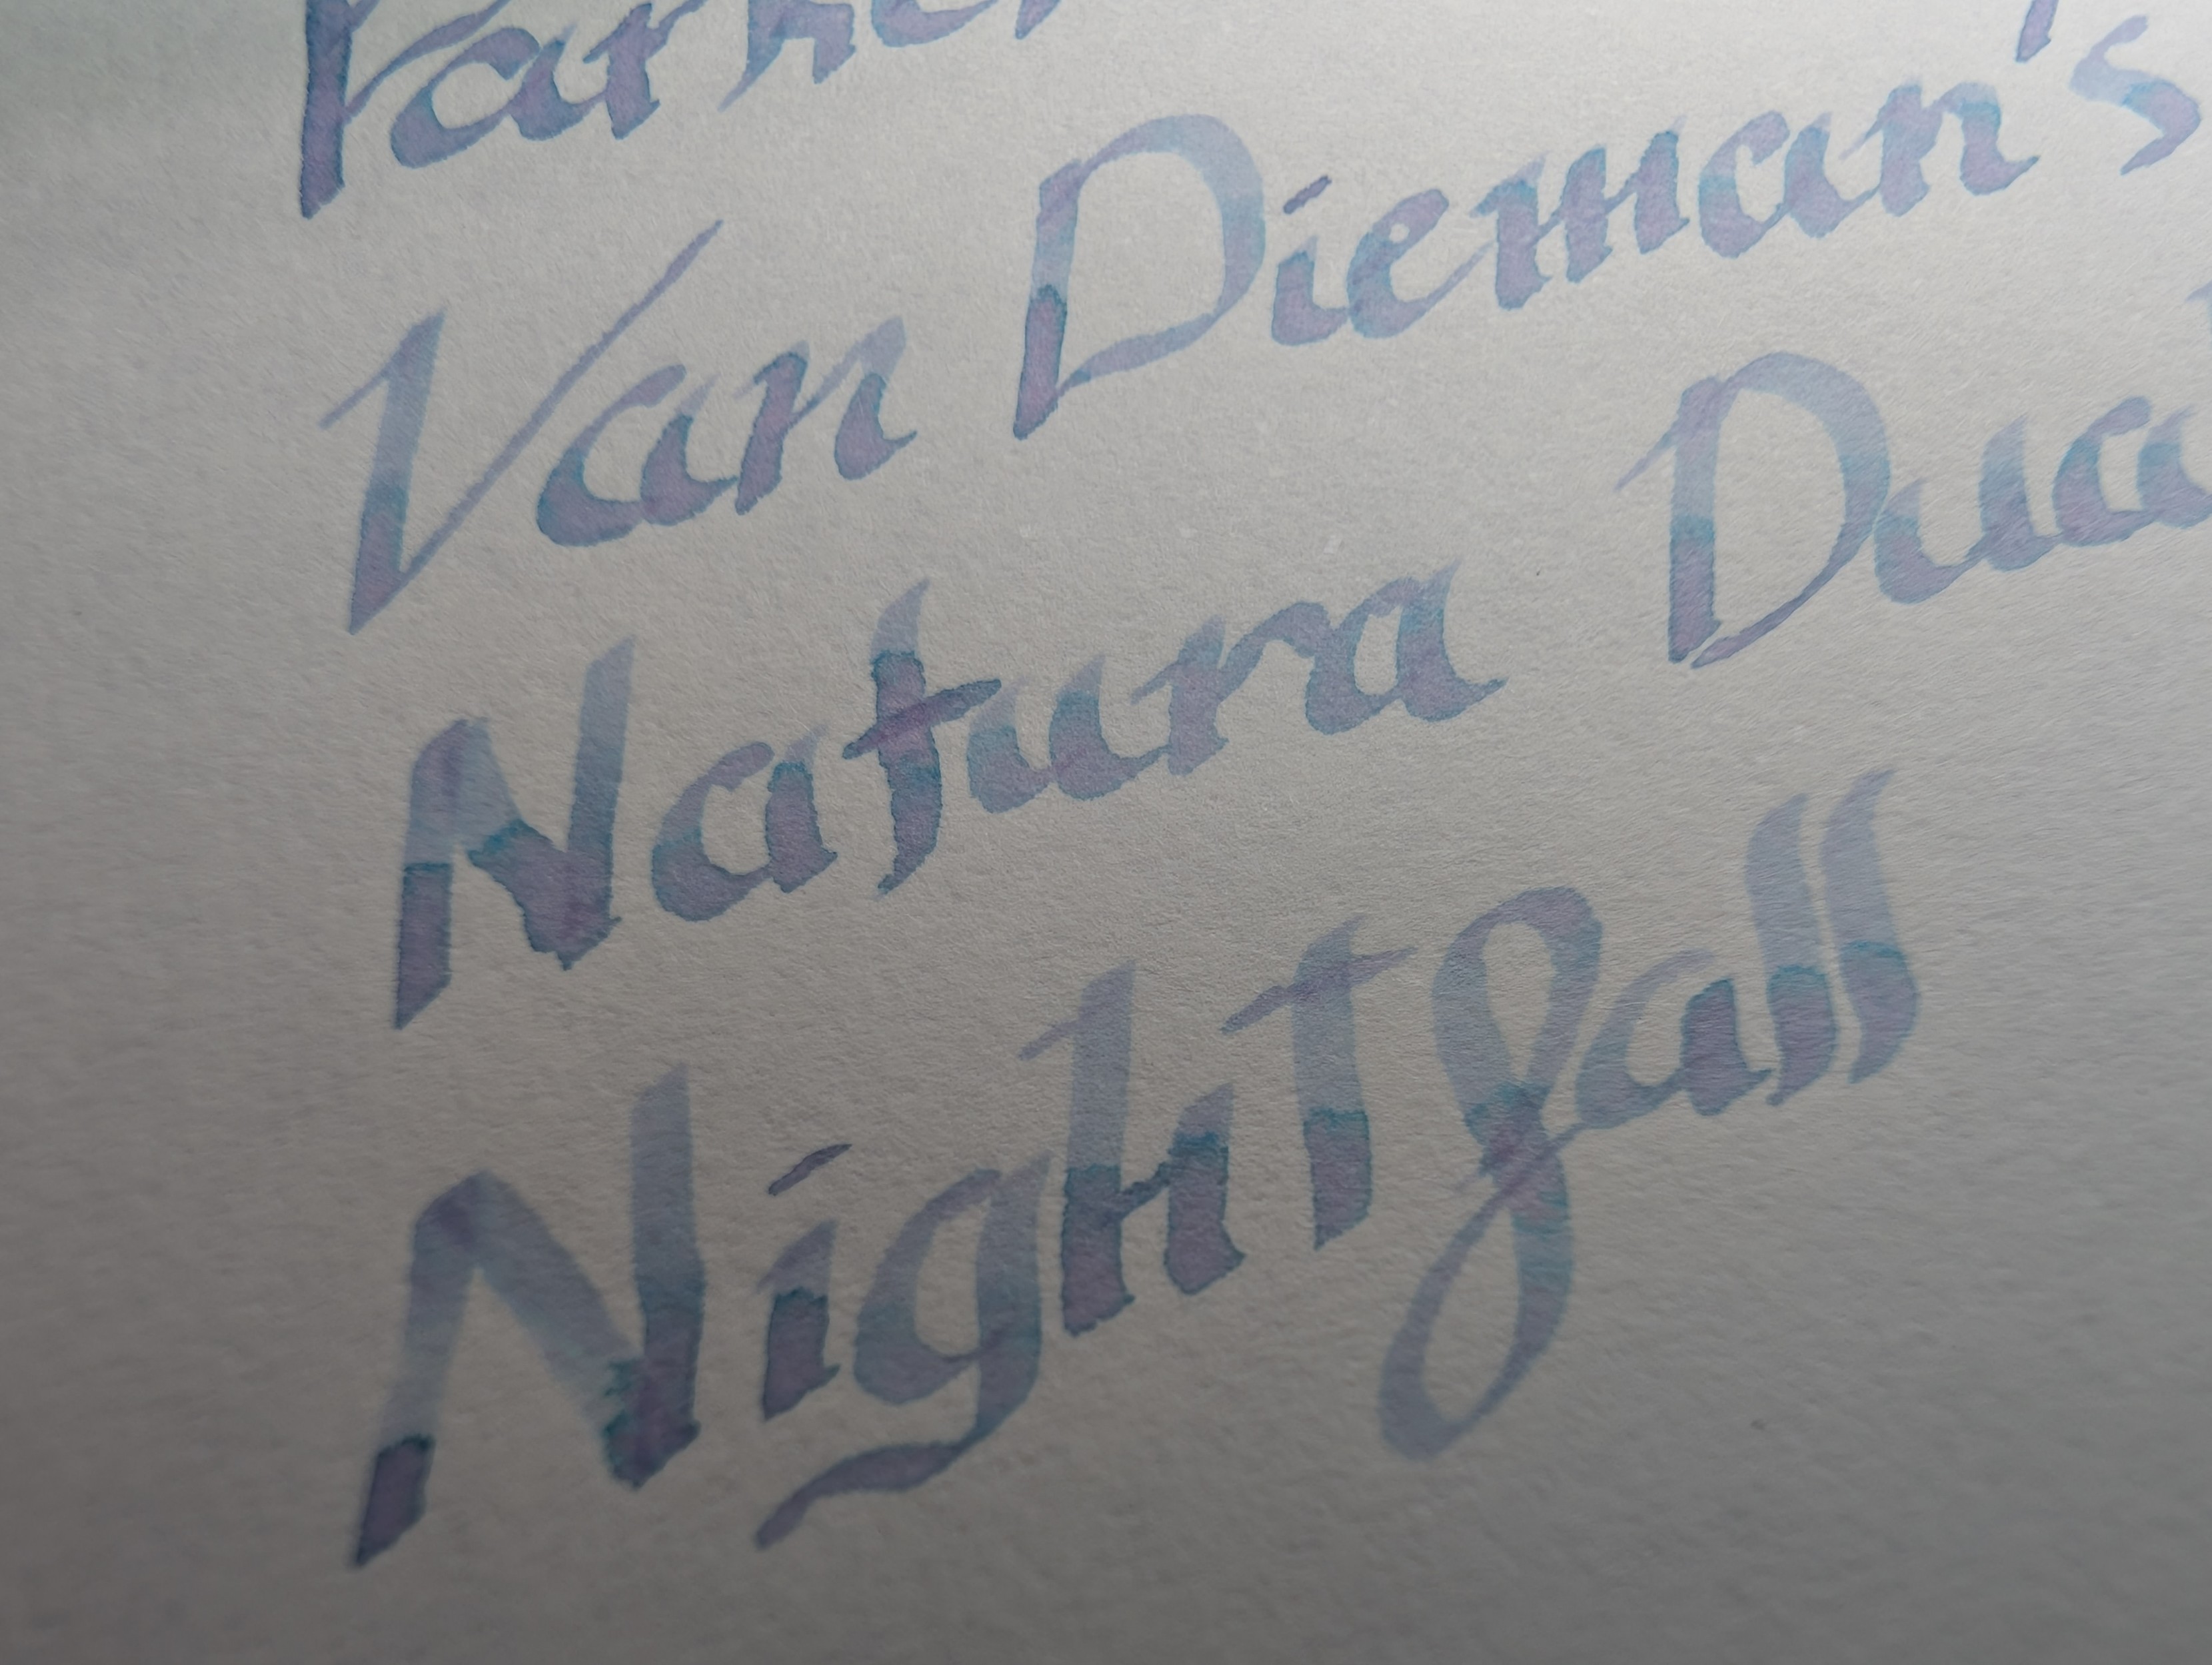 Parker
Van Dieman's
Natura
Nightfall